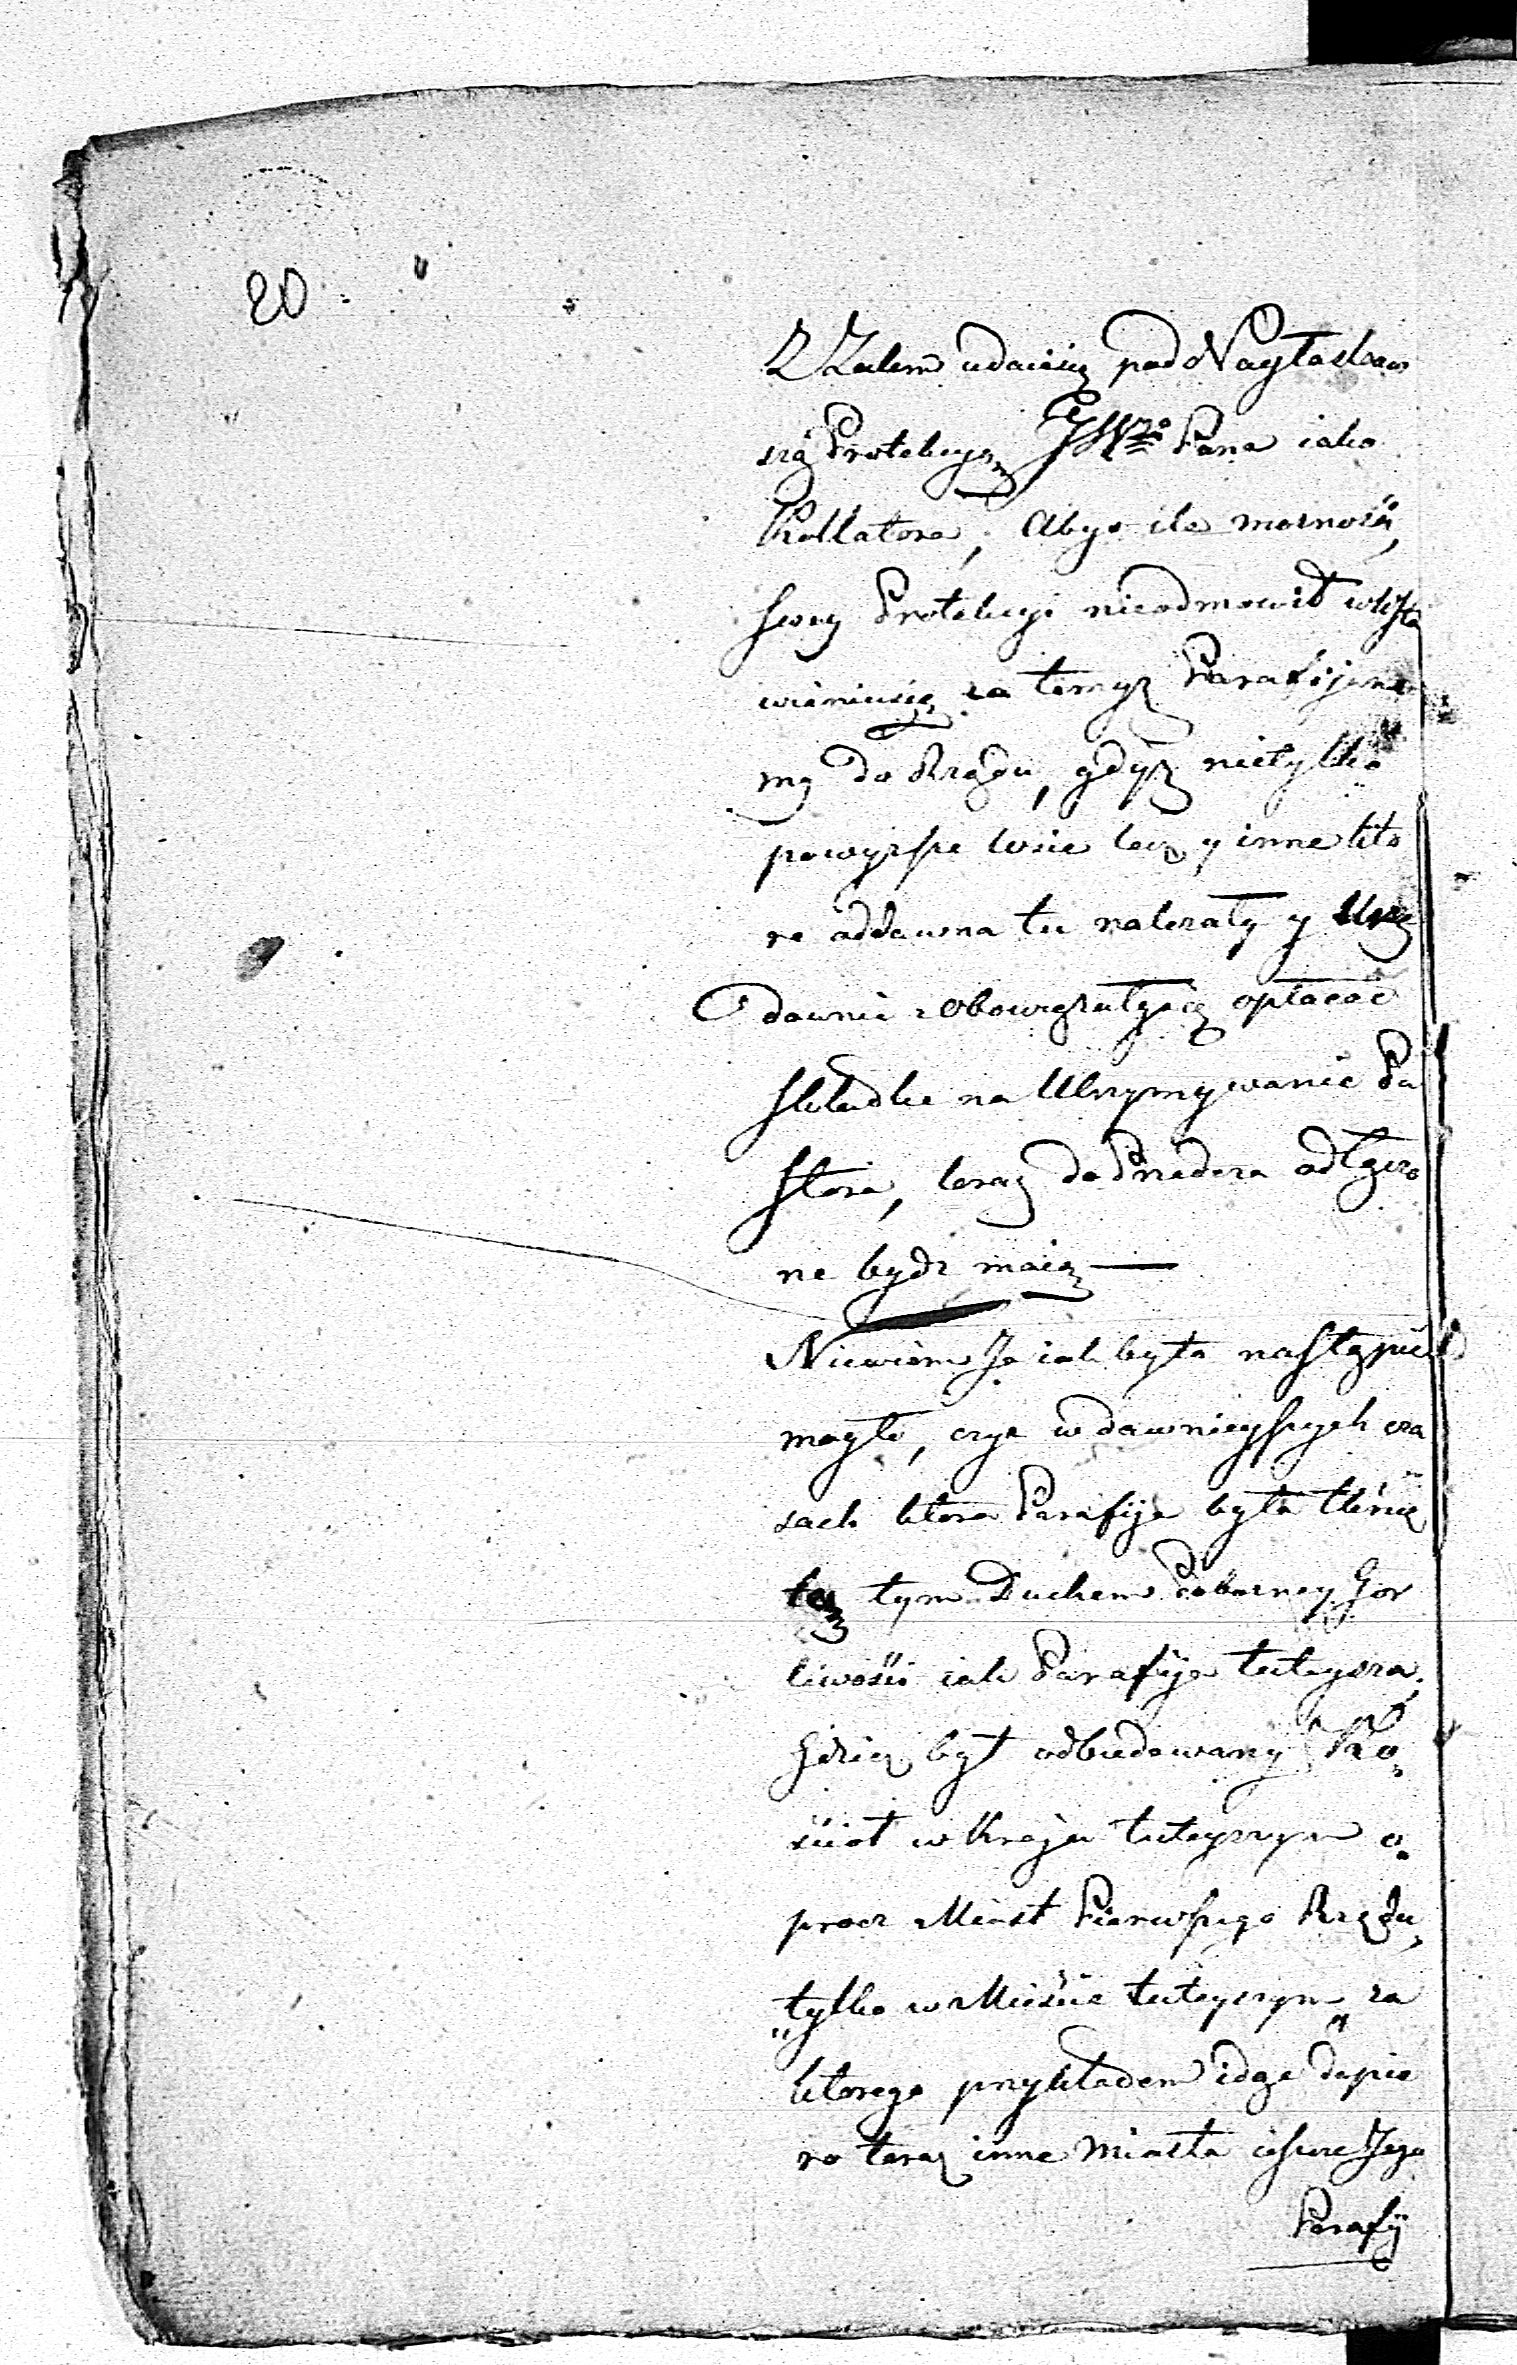 20
Z Zalem udaiesię pod Nayłaskaw
szą Protekcyą JWgo Pana iako
Kollatora, Abyś ile mozności
swey Protekcyi nieodmowił wsta
wieniusię za temyż Parafijana
mÿ do Rządu, gdyż nietylko
powyzsze wsie lecz y inne kto
re oddawna tu nalezały y
dawnie obowęzałysię opłacać
składke na Utrzymywanie Pa
stora, teraz do Predera odłączo
ne bydz maią —
Niewiem Ja iak było nastąpić
mogło, czyż w dawnieyszych cza
sach ktora Parafija była tknię
tą tym Duchem Poborney Gor
liwości iak Parafija tuteysza,
Gdzież był odbudowany Ko
ścioł w Kraju tuteyszym o
procz Miast Pierwszego Rzędu,
tylko w Mieście tuteyszym za
ktorego przykładem idge dopie
ro teraz inne Miasta ieszcze Jego
Parafÿ